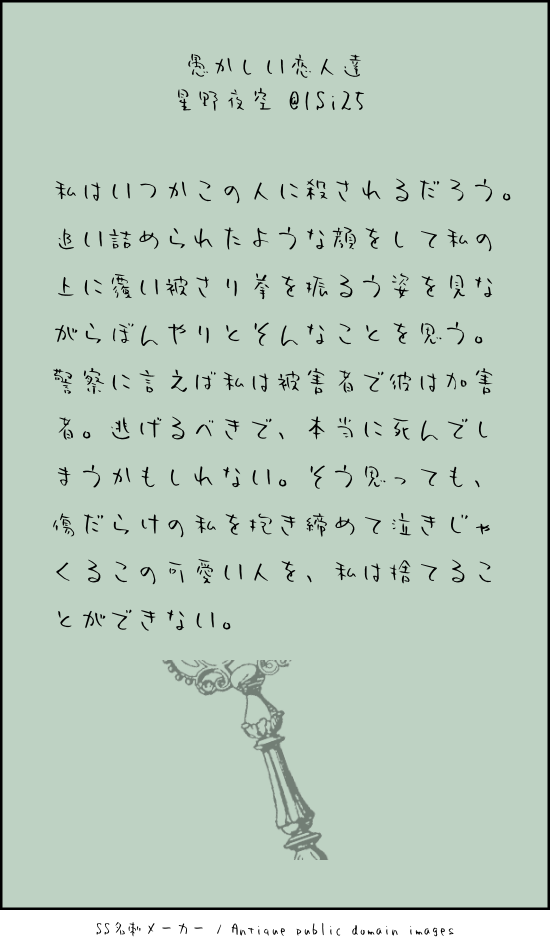 愚かしい恋人達
星野夜空 @1Si25
私はいつかこの人に殺されるだろう。
追い詰められたような顔をして私の
上に覆い被さり拳を振るう姿を見な
がらぼんやりとそんなことを思う。
警察に言えば私は被害者で彼は加害
者。逃げるべきで、本当に死んでし
まうかもしれない。そう思っても、
傷だらけの私を抱き締めて泣きじゃ
くるこの可愛い人を、私は捨てるこ
とができない。
SS名刺メーカー / Antique public domain images